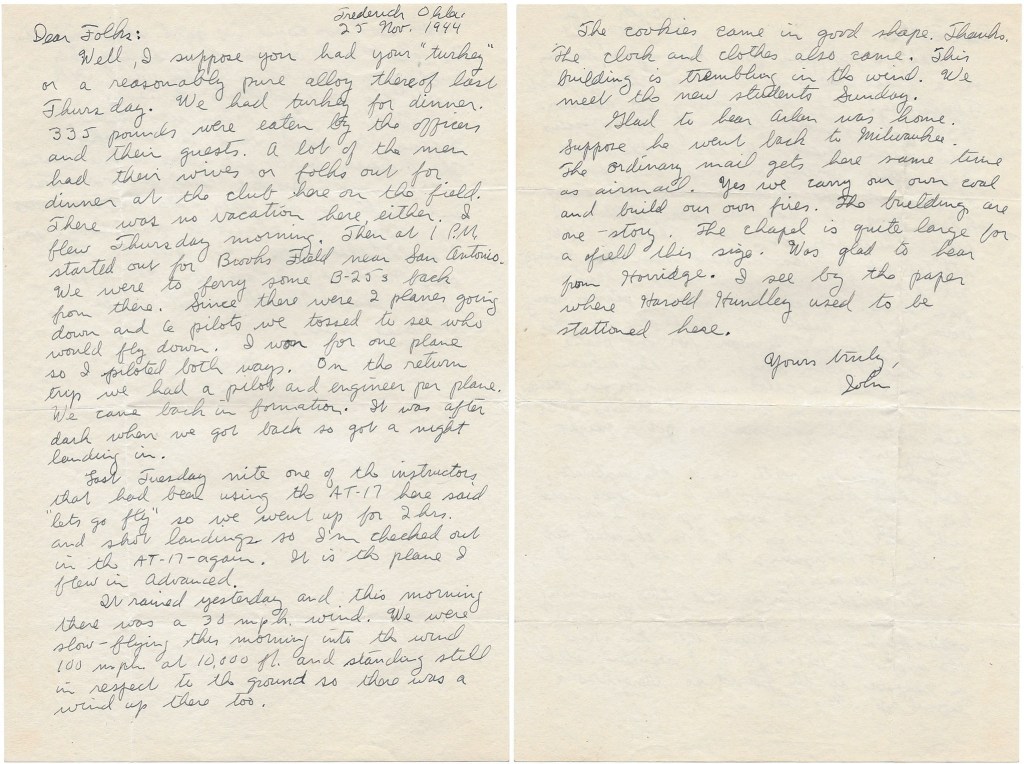 Frederick Okla.
25 Nov. 1944
Dear Folks:
Well, I suppose you had your "turkey"
or a reasonably pure alloy thereof last
Thursday. We had turkey for dinner.
335 pounds were eaten by the officers
and their guests. A lot of the men
had their wives or folks out for
dinner at the club here on the field.
There was no vacation here, either. I
flew Thursday morning. Then at 1 P.M.
started out for Brooks Field near San Antonio.
We were to ferry some B-25s back
from there. Since there were 2 planes going
down and 6 pilots we tossed to see who
would fly down. I won for one plane
so I piloted both ways. On the return
trip we had a pilot and engineer per plane.
We came back in formation. It was after
dark when we got back so got a night
landing in.
Last Tuesday nite one of the instructors
that had been using the AT-17 here said
"lets go fly" so we went up for 2 hrs.
and shot landings so I'm checked out
in the AT-17-again. It is the plane I
flew in Advanced.
It rained yesterday and this morning
there was a 30 mph. wind. We were
slow-flying this morning into the wind
100 mph at 10,000 ft. and standing still
in respect to the ground so there was a
wind up there too.
The cookies came in good shape. Thanks.
The clock and clothes also came. This
building is trembling in the wind. We
meet the new students Sunday.
Glad to hear Arlan was home.
Suppose he went back to Milwaukee.
The ordinary mail gets here same time
as airmail. Yes we carry our own coal
and build our own fires. The buildings are
one-story. The chapel is quite large for
a field this size. Was glad to hear
from Horridge. I see by the paper
where Harold Hundley used to be
stationed here.
Yours truly,
John